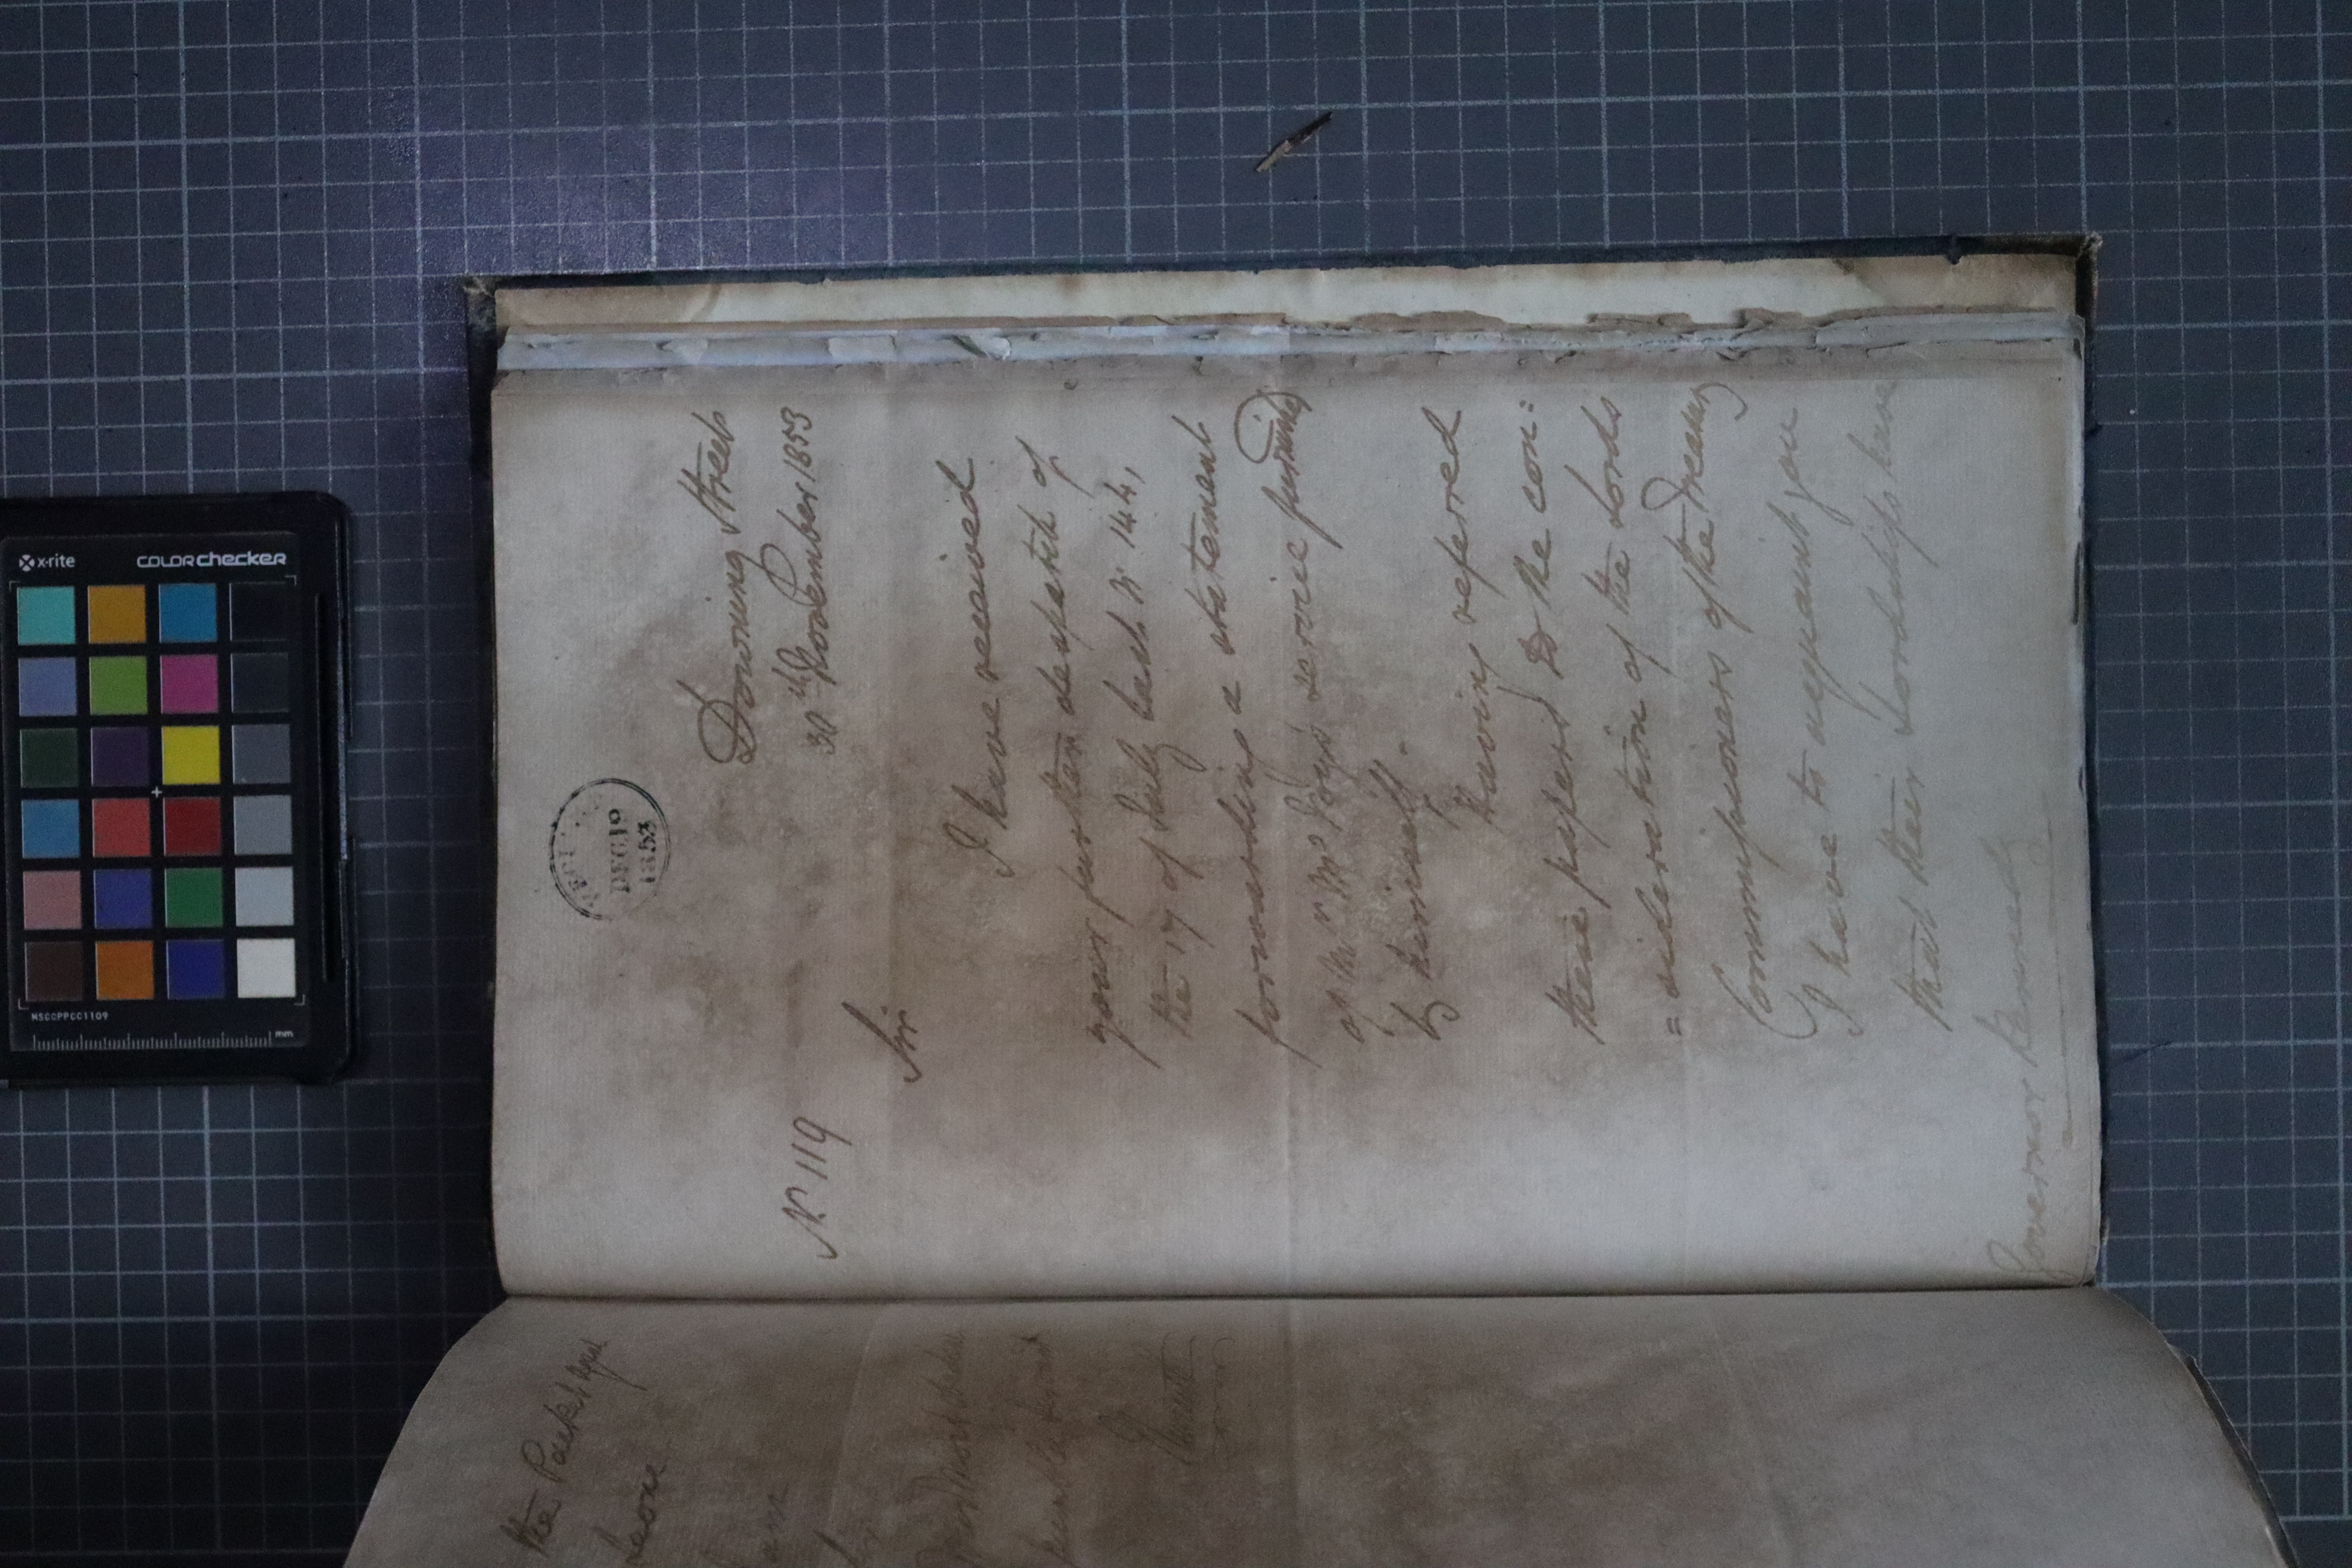 DEC 10
1853
Downing Street
30th November 1853
No. 119
Sir
I have received
your further despatch of
the 17 of July last No. 144,
forwarding a statement
of Mr.
by himself.
Having referred
these papers to the con:
= sideration of the Lords
Commissioners of the Treasury
I have to acquaint you
that their Lordships have
Governor Kennedy
the Packet
Leone
x-rite
COLORchecker
MSCCPPCC1109
mm